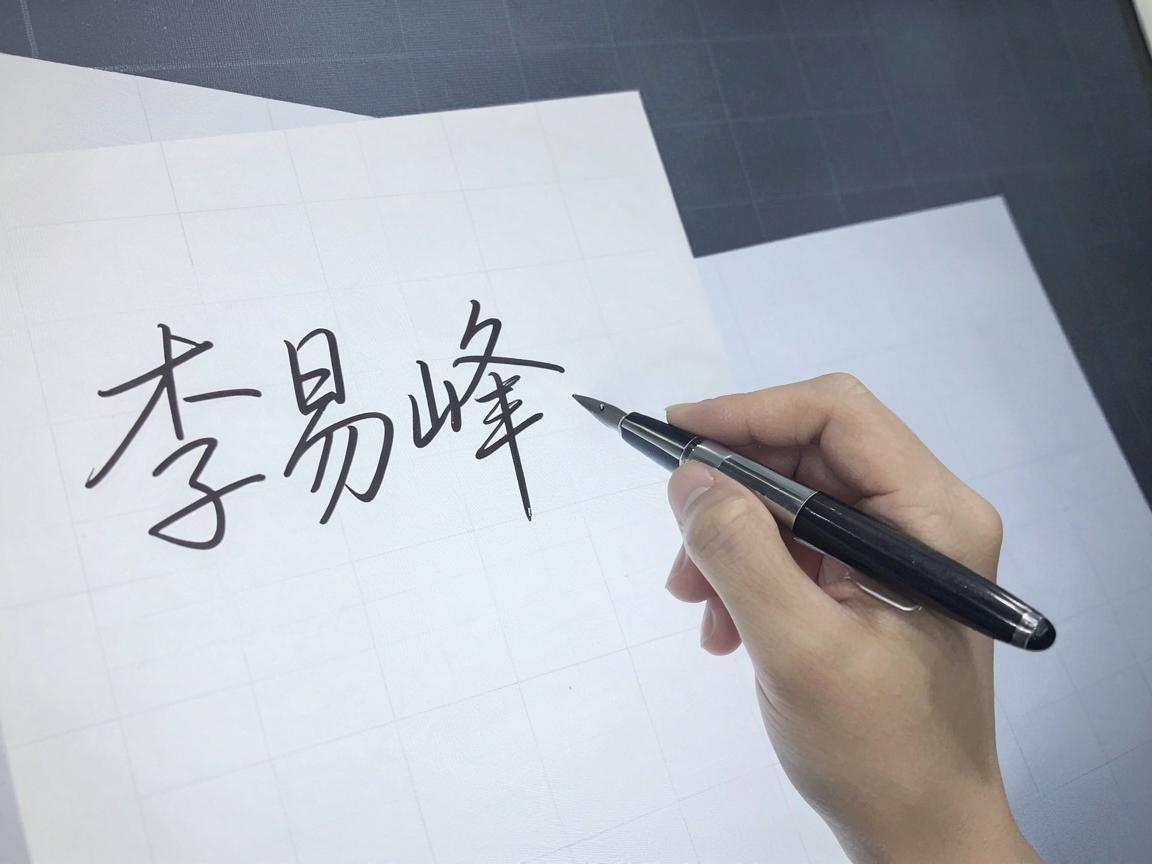 李易峰